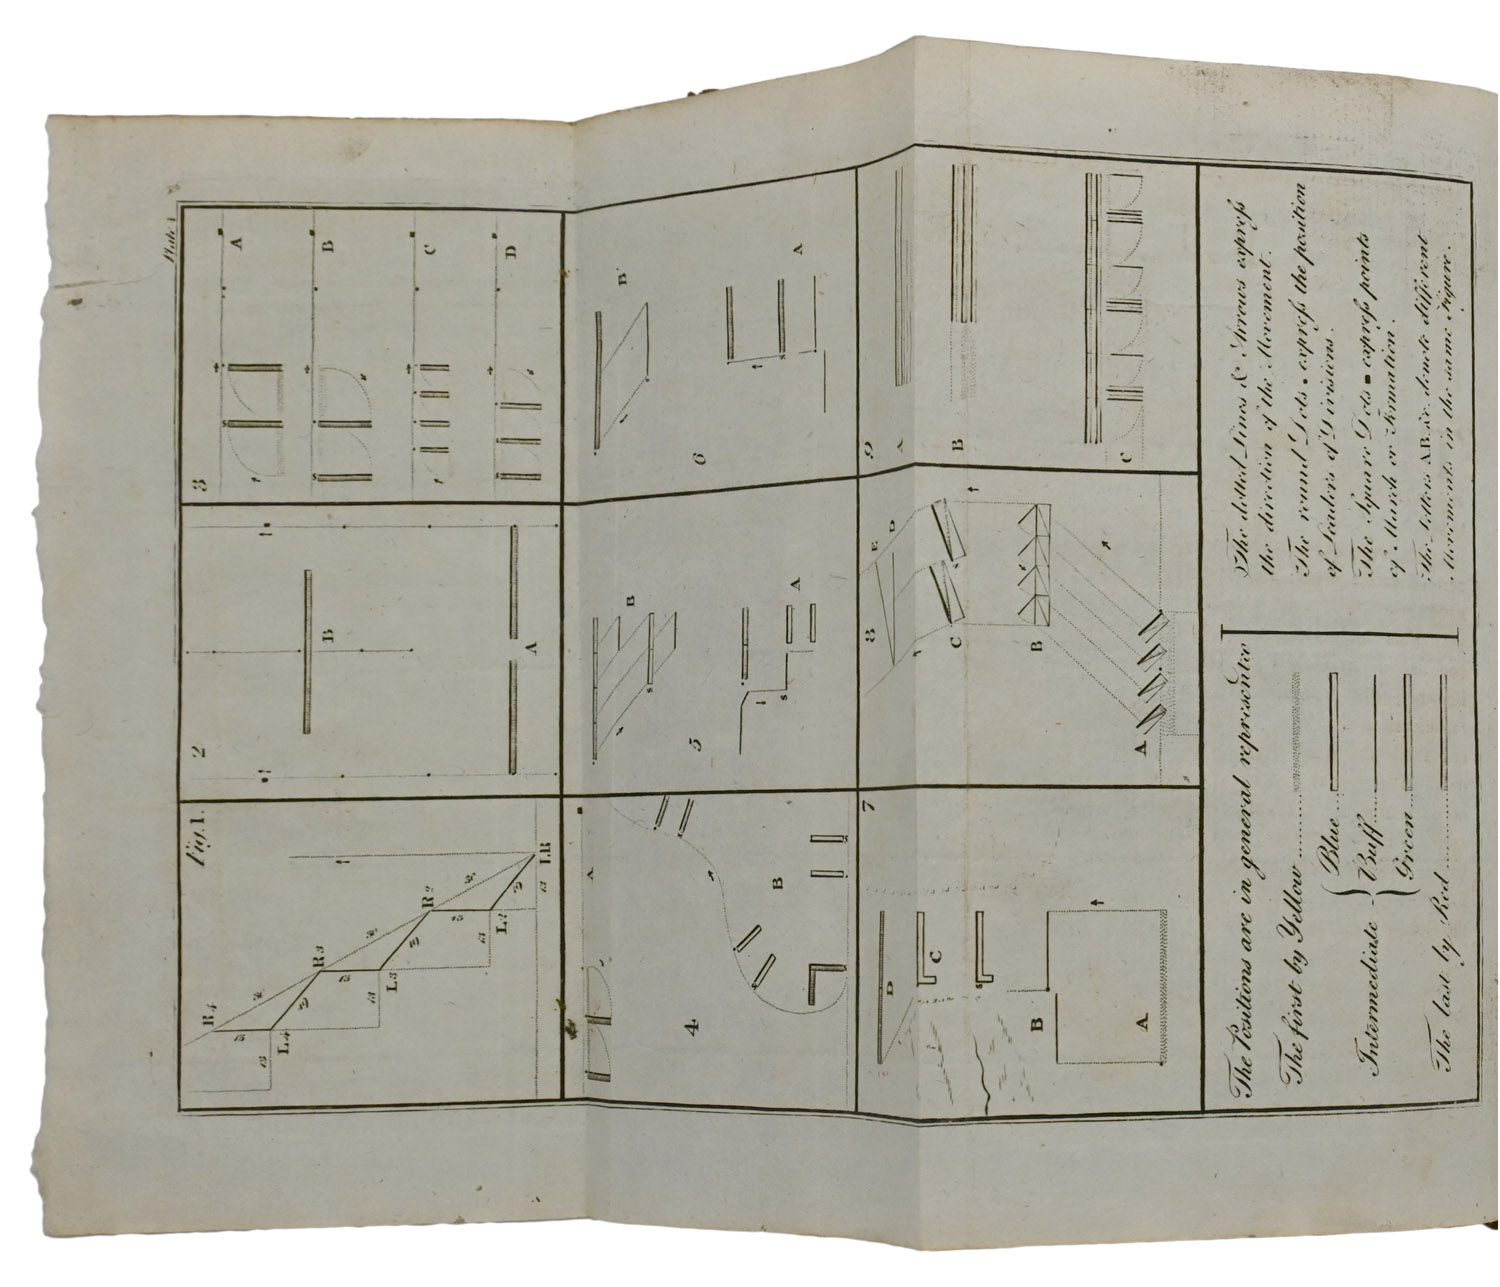 Plate 1
Fig. 1.
R 4
R 3
R 2
L R
L 4
L 3
L 2
2
B
A
3
A
B
C
D
4
A
B
5
B
A
6
B
A
7
D
C
B
A
8
E
D
C
B
A
9
A
B
C
The Positions are in general represented
The first by Yellow
Intermediate { Blue
Buff
Green
The last by Red
The dotted Lines & Arrows express
the direction of the Movement.
The round Dots • express the position
of Leaders of Divisions.
The Square Dots ▪ express points
of March or Formation.
The Letters A.B.&c. denote different
Movements in the same Figure.